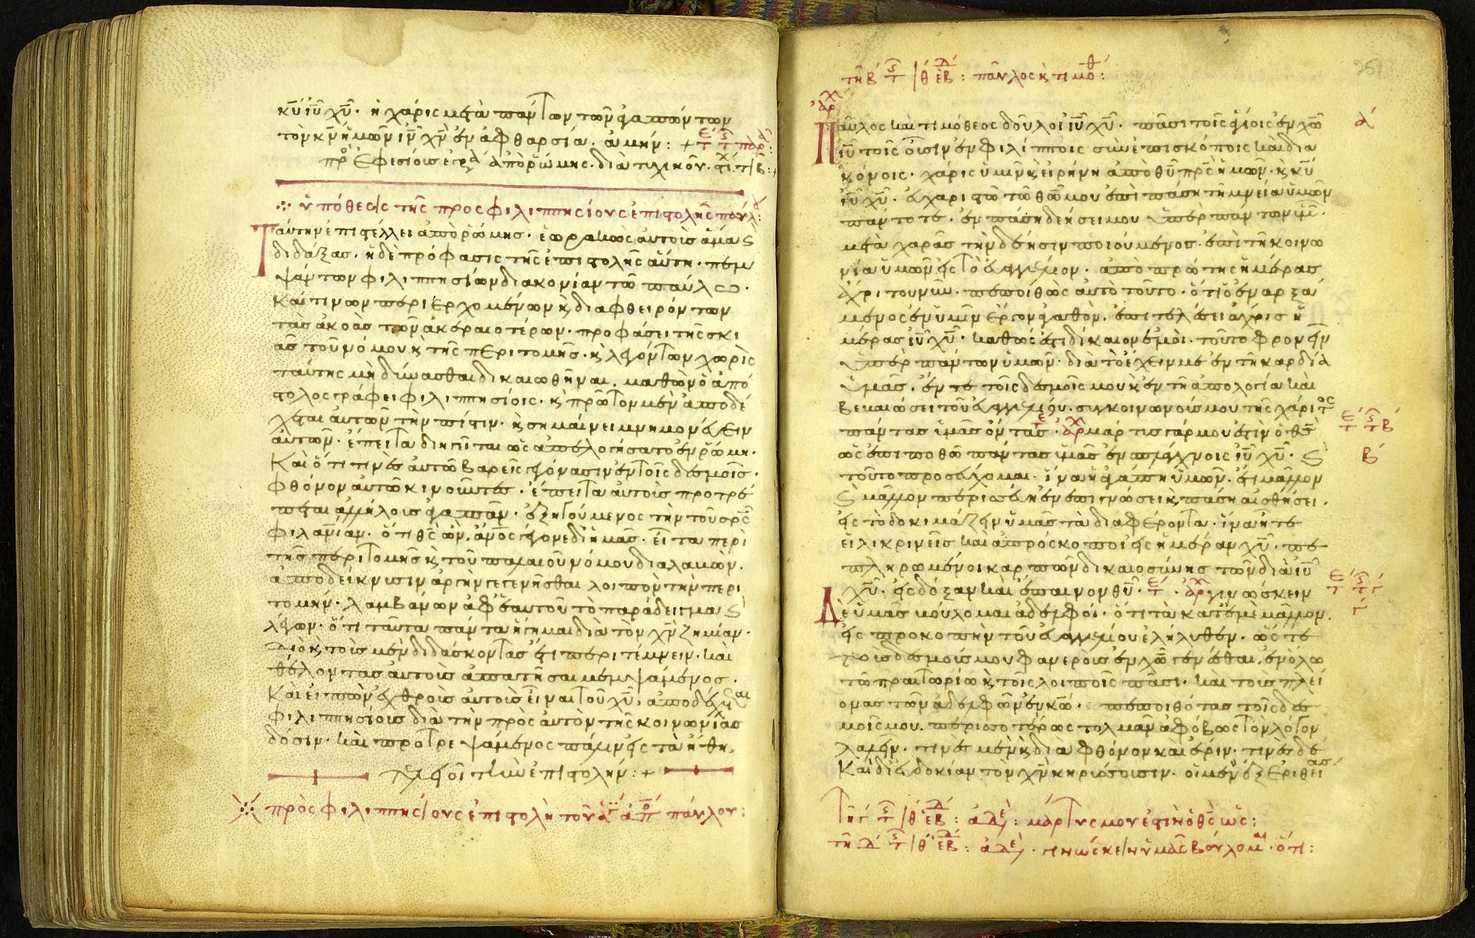 κ̅υ̅ ι̅υ̅ χ̅υ̅. ἡ χάρις μετὰ πάντων τῶν ἀγαπώντων
τὸν κ̅ν̅ ἡμῶν ι̅ν̅ χ̅ν̅ ἐν ἀφθαρσία. ἀμήν:
πρὸ ἐφεσίους ἐγρά ἀπὸ ῥώμης. διὰ τυχικοῦ.
ὑπόθεσις τῆς προς φιλιππησίους ἐπιστολῆς παύλ
Ταύτην ἐπιστέλλει ἀπὸ ῥώμης. ἑωρακὼς αὐτοὺς ἅμα
διδάξας. ἡ δὲ πρόφασις τῆς ἐπιστολῆς αὕτη. πεμ
ψάντων φιλιππησίων διακονίαν τῶ παύλω.
καί τινων περιερχομένων κ διαφθειρόντων
τὰς ἀκοὰς τῶν ἀκεραιοτέρων. προφάσει τῆς σκι
ᾶς τοῦ νόμου κ τῆς περιτομῆς. κ λεγόντων χωρὶς
ταύτης μὴ δύνασθαι δικαιωθῆναι. μαθὼν ὁ ἀπό
στολος γράφει φιλιππησίοις. κ πρῶτον μὲν ἀποδέ
χεται αὐτῶν τὴν πίστιν. κ σημαίνει μνημονεύειν
αὐτῶν. ἔπειτα διηγεῖται ὡς ἀπελογήσατο ἐν ῥώμη.
Καὶ ὅτι τινὲς αὐτῶ βαρεῖς γέγονασιν ἐν τοῖς δεσμοῖς.
φθόνον αὐτῶ κινοῦντες. ἔπειτα αὐτοὺς προτρέ
πεται ἀλλήλους ἀγαπᾶν. ἐξηγούμενος τὴν τοῦ σ̅ρ̅ς̅
φιλανίαν. ὅτι θ̅ς̅ ὢν, ἄν̅ο̅ς̅ γέγονε δι ἡμᾶς. εἶτα περὶ
τῆς περιτομῆς κ τοῦ παλαιοῦ νόμου διαλαμών.
ἀποδείκνυσιν ἀργὴν γεγενῆσθαι λοιπὸν τὴν περι
τομήν. λαμβάνων ἀφ ἑαυτοῦ τὸ παράδειγμα
λέγων. ὅτι ταῦτα πάντα ἥγημαι διὰ τὸν χ̅ν̅ ζημίαν.
Διὸ κ τοὺς μὲν διδάσκοντας ἔτι περιτέμνειν. καὶ
θέλοντας αὐτοὺς ἀπατῆσαι μεμψάμενος.
Καὶ εἰπὼν ἐχθροὺς αὐτοὺς εἶναι τοῦ χ̅υ̅, ἀποδέχεται
φιλιππησίους διὰ τὴν πρὸς αὐτὸν τῆς κοινωνίας
δόσιν. καὶ προτρεψάμενος πάλιν εἰς τὰ ἤθη.
τελειοῖ τὴν ἐπιστολήν:+
πρὸς φιλιππησίους ἐπιστολὴ τοῦ ἁγ ἀπ παύλου:
τῆ β παῦλος κ τιμοθ:
Παῦλος καὶ τιμόθεος δοῦλοι ι̅υ̅ χ̅υ̅. πᾶσι τοῖς ἁγίοις ἐν χ̅ω̅
ι̅υ̅ τοῖς οὖσιν ἐν φιλίπποις συν ἐπισκόποις καὶ δια
κόνοις. χάρις ὑμῖν κ εἰρήνη ἀπὸ θ̅υ̅ π̅ρ̅ς̅ ἡμῶν. κ κ̅υ̅
ι̅υ̅ χ̅υ̅. εὐχαριστῶ τῶ θ̅ω̅ μου ἐπὶ πάση τῆ μνεία ὑμῶν
πάντοτε. ἐν πάση δεήσει μου ὑπὲρ πάντων ὑμ.
μετὰ χαρᾶς τὴν δέησιν ποιούμενος. ἐπὶ τῆ κοινω
νία ὑμῶν εἰς τὸ εὐαγγέλιον. ἀπὸ πρώτης ἡμέρας
ἄχρι τοῦ νῦν. πεποιθὼς αὐτὸ τοῦτο. ὅτι ὁ ἐναρξά
μενος ἐν ὑμῖν ἔργον ἀγαθὸν, ἐπιτελέσει ἄχρις ἡ
μέρας ι̅υ̅ χ̅υ̅. καθὼς ἐστὶ δίκαιον ἐμοὶ. τοῦτο φρονεῖν
ὑπὲρ πάντων ὑμῶν. διὰ τὸ ἔχειν με ἐν τῆ καρδία
ὑμᾶς. ἐν τε τοῖς δεσμοῖς μου κ ἐν τῆ ἀπολογία καὶ
βεβαιώσει τοῦ εὐαγγελίου. συγκοινωνούς μου τῆς χάριτος
πάντας ὑμᾶς ὄντας. μάρτυς γάρ μου ἐστὶν ὁ θ̅ς̅
ὡς ἐπιποθῶ πάντας ὑμᾶς ἐν σπλάγχνοις ι̅υ̅ χ̅υ̅.
τοῦτο προσεύχομαι. ἵνα ἡ ἀγάπη ὑμῶν. ἔτι μᾶλλον
κ μᾶλλον περισσεύη ἐν ἐπιγνώσει κ πάση αἰσθήσει.
εἰς τὸ δοκιμάζειν ὑμᾶς τὰ διαφέροντα. ἵνα ἦτε
εἰλικρινεῖς καὶ ἀπρόσκοποι εἰς ἡμέραν χ̅υ̅. πε
πληρωμένοι καρπῶν δικαιοσύνης τῶν διὰ ι̅υ̅
χ̅υ̅. εἰς δόξαν καὶ ἔπαινον θ̅υ̅. γινώσκειν
Δὲ ὑμᾶς βούλομαι ἀδελφοὶ. ὅτι τὰ κατ ἐμὲ μᾶλλον.
εἰς προκοπὴν τοῦ εὐαγγελίου ἐλήλυθεν. ὥστε
τοὺς δεσμούς μου φανεροὺς ἐν χ̅ω̅ γενέσθαι. ἐν ὅλω
τῶ πραιτωρίω κ τοῖς λοιποῖς πᾶσι. καὶ τοὺς πλεί
ονας τῶν ἀδελφῶν ἐν κ̅ω̅. πεποιθότας τοῖς δεσ
μοῖς μου. περισσοτέρως τολμᾶν ἀφόβως τὸν λόγον
λαλεῖν. τινὲς μὲν κ διὰ φθόνον καὶ ἔριν. τινὲς δὲ
Καὶ δι εὐδοκίαν τὸν χ̅ν̅ κηρύσσουσιν. οἱ μὲν ἐξ ἐριθείας
τῆ γ ἀδε: μάρτυς μου ἐστὶν ὁ θ̅ς̅ ὡς:
τῆ δ ἀδε. γινώσκειν ὑμᾶς βούλομαι. ὅτι: